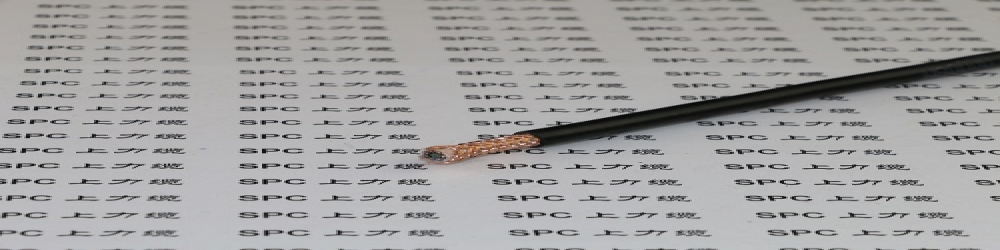 SPC 上力缆 SPC 上力缆 SPC 上力缆 SPC 上力缆 SPC 上力缆
SPC 上力缆 SPC 上力缆 SPC 上力缆 SPC 上力缆 SPC 上力缆
SPC 上力缆 SPC 上力缆 SPC 上力缆 SPC 上力缆 SPC 上力缆
SPC 上力缆 SPC 上力缆 SPC 上力缆 SPC 上力缆 SPC 上力缆
SPC 上力缆 SPC 上力缆 SPC 上力缆 SPC 上力缆
SPC 上力缆 SPC 上力缆 SPC 上力缆 SPC 上力缆
SPC 上力缆 SPC 上力缆 SPC 上力缆 SPC 上力缆
SPC 上力缆 SPC 上力缆 SPC 上力缆 SPC 上力缆
SPC 上力缆 SPC 上力缆 SPC 上力缆 SPC 上力缆
SPC 上力缆 SPC 上力缆 SPC 上力缆 SPC 上力缆
SPC 上力缆 SPC 上力缆 SPC 上力缆 SPC 上力缆
SPC 上力缆 SPC 上力缆 SPC 上力缆 SPC 上力缆
SPC 上力缆 SPC 上力缆 SPC 上力缆 SPC 上力缆
SPC 上力缆 SPC 上力缆 SPC 上力缆 SPC 上力缆
SPC 上力缆 SPC 上力缆 SPC 上力缆 SPC 上力缆
SPC 上力缆 SPC 上力缆 SPC 上力缆 SPC 上力缆
SPC 上力缆 SPC 上力缆 SPC 上力缆 SPC 上力缆